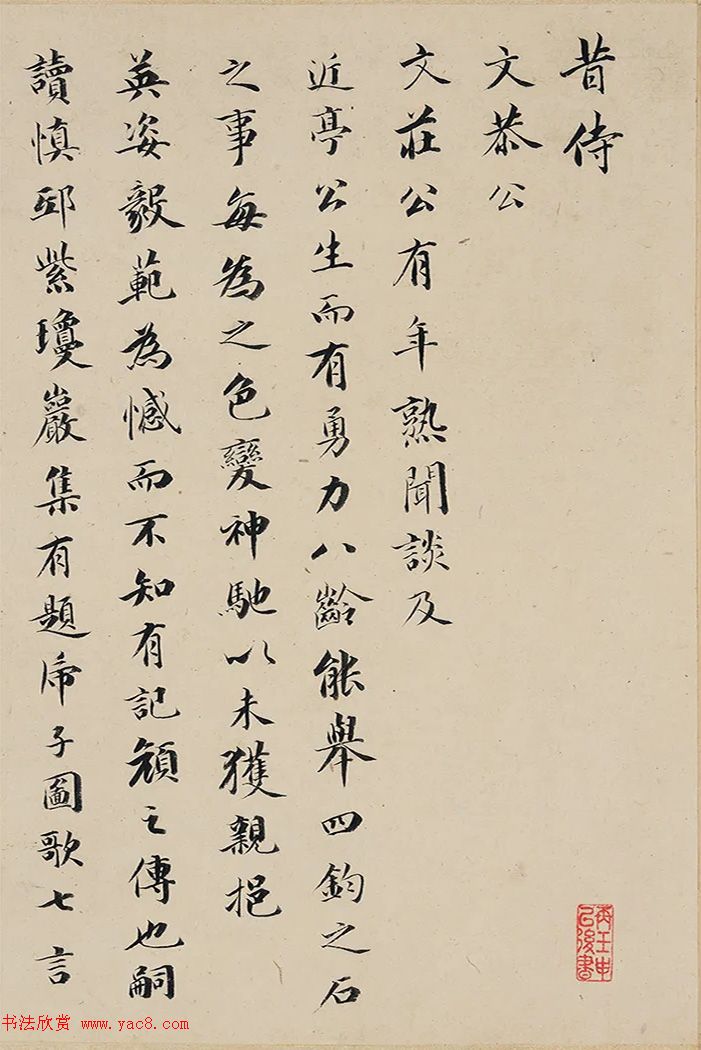 昔侍
文恭公
文莊公有年熟聞談及
近亭公生而有勇力八齡能舉四鈞之石
之事每為之色變神馳以未獲親挹
英姿毅範為憾而不知有記頠之傳也嗣
讀慎郘紫瓊巖集有題帝子圖歌七言
书法欣赏 www.yac8.com